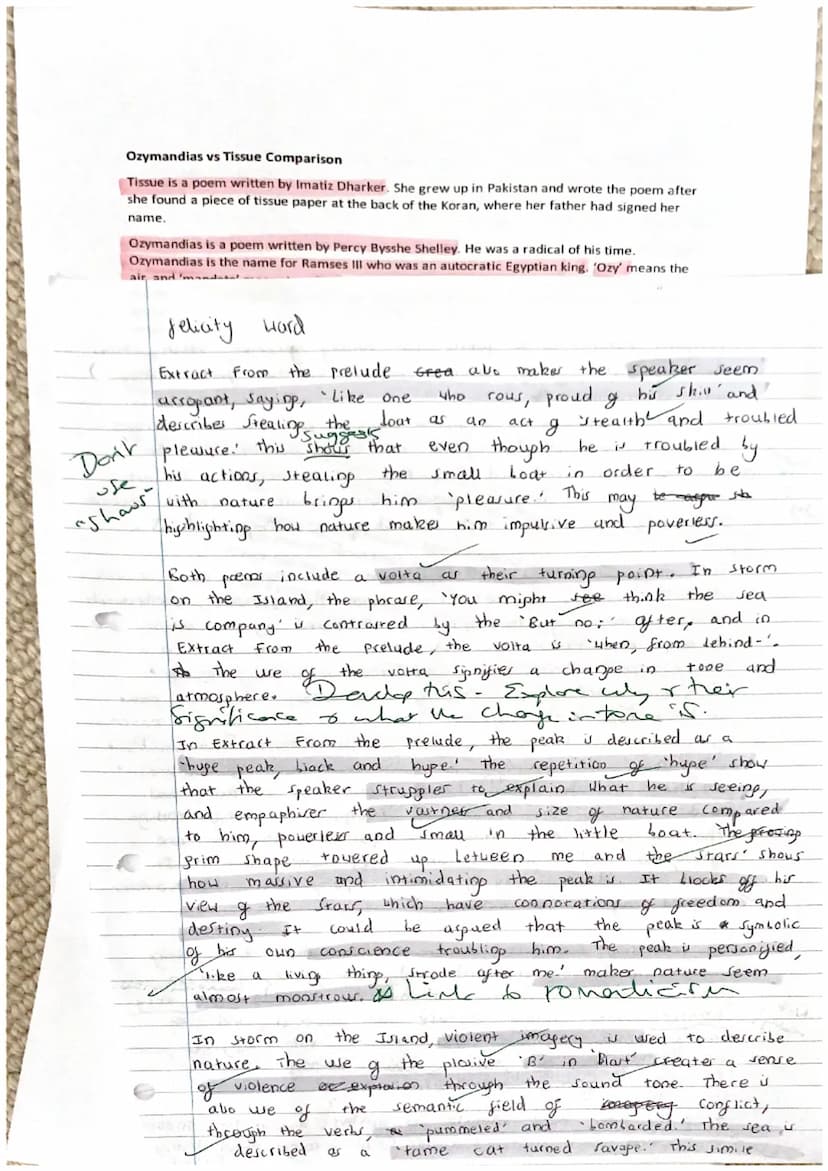 Ozymandias vs Tissue Comparison
Tissue is a poem written by Imatiz Dharker. She grew up in Pakistan and wrote the poem after
she found a piece of tissue paper at the back of the Koran, where her father had signed her
name.
Ozymandias is a poem written by Percy Bysshe Shelley. He was a radical of his time.
Ozymandias is the name for Ramses III who was an autocratic Egyptian king. 'Ozy' means the
air and
felicity ward
Extract From the prelude also makes the speaker seem
arrogant, saying, 'like one who rows, proud of his skill' and
describes stealing the boat as an act of 'stealth and troubled
suggests
pleasure.' this shows that even though he is troubled by
Don't
his actions, stealing the small boat in order to be
use
with nature brings him 'pleasure.' This may
"shows"
highlighting how nature makes him impulsive and powerless.
Both poems include a volta as their turning point. In storm
on the Island, the phrase, 'You might see think the sea
is company' is contrasted by the 'But no:' after, and in
Extract from the prelude, the volta is 'when, from behind-'.
The use of the volta signifies a change in tone and
atmosphere. Develop this - Explore why & their
significance & what the change in tone is.
In Extract From the prelude, the peak is described as a
'huge peak, black and huge.' the repetition of 'huge' show
that the speaker struggles to explain what he is seeing,
and emphasises the vastness and size of nature compared
to him, powerless and small in the little boat. The
grim shape towered up between me and the stars' shows
how massive and intimidating the peak is. It blocks off his
view of the stars, which have connotations of freedom and
destiny. It could be argued that the peak is symbolic
of his own conscience troubling him. The peak is personified,
'like a living thing, strode after me.' makes nature seem
almost monstrous. Link to romanticism
In Storm on the Island, violent imagery is used to describe
nature. The use of the plosive 'B' in 'Blast' creates a sense
of violence or explosion through the sound tone. There is
also use of the semantic field of conflict,
through the verbs, 'pummeled' and 'bombarded.' The sea is
described as a 'tame cat turned savage.' This simile